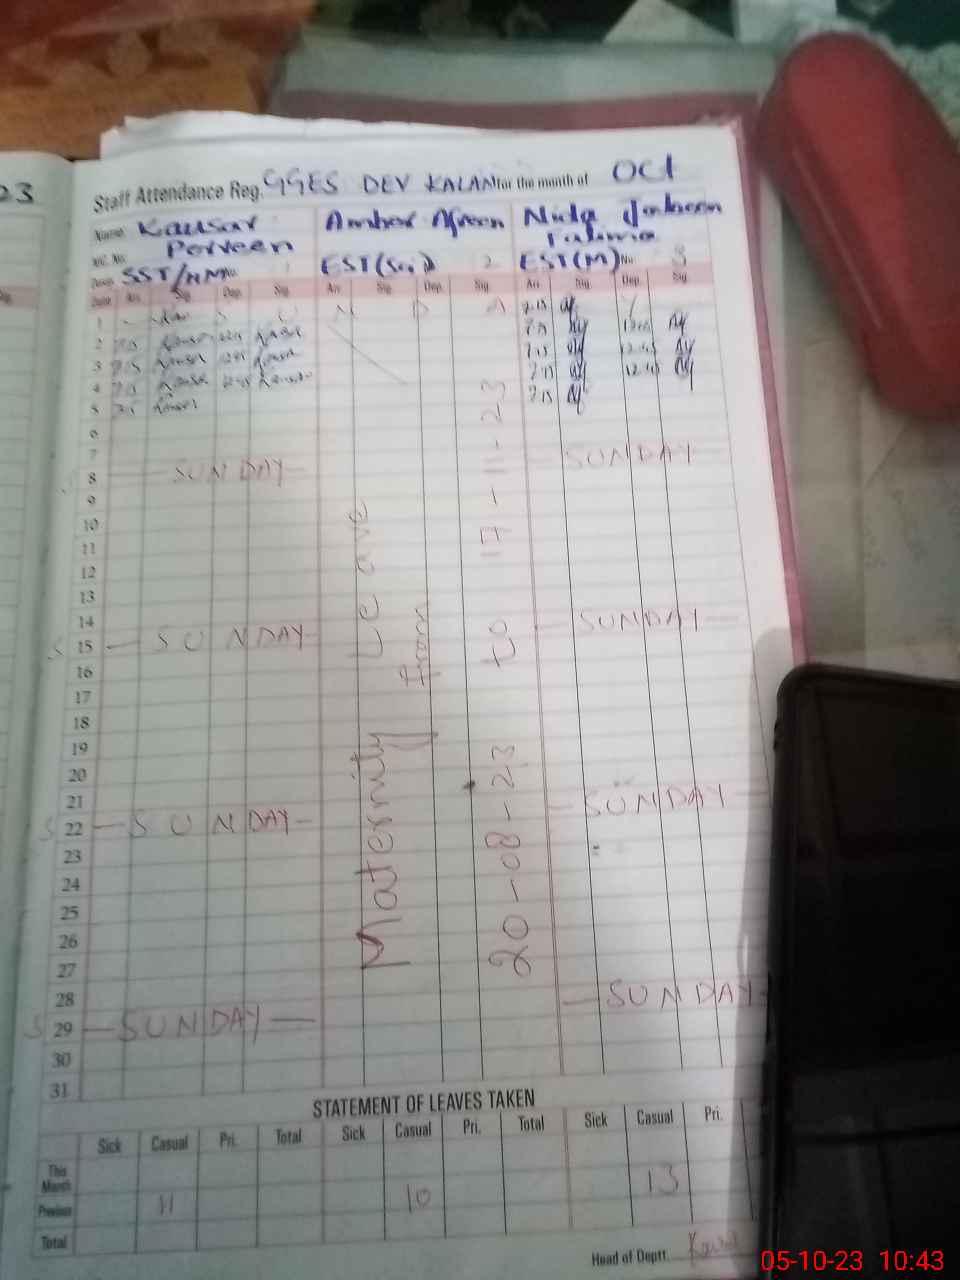 23
Staff Attendance Reg. GGES DEV KALAN for the month of Oct
Name Kausar Perveen
Amber Afreen
Nida Jabeen Fatima
SST/HM No. 1
EST(Sci) 2
EST(M) No. 3
Date Arr. Sig. Dep. Sig. Arr. Sig. Dep. Sig. Arr. Sig. Dep. Sig.
1 S U N D A Y
2 7.15 Kausar 12:45 Kausar 7.15 12:45
3 7.15 Kausar 12:45 Kausar 7.15 12:45
4 7.15 Kausar 12:45 Kausar 7.15 12:45
5 7.15 Kausar 7.15
6
7
8 SUNDAY SUNDAY
9
10
11
12
13
14
S 15 SUNDAY SUNDAY
16
17
18
19
20
21
S 22 SUNDAY SUNDAY
23
24
25
26
27
28
S 29 SUNDAY SUNDAY
30
31
Maternity Leave
from
20-08-23 to 17-11-23
STATEMENT OF LEAVES TAKEN
Sick Casual Pri. Total Sick Casual Pri. Total Sick Casual Pri.
This Month
Previous 11 10 13
Total
Head of Deptt. Kausar
05-10-23 10:43